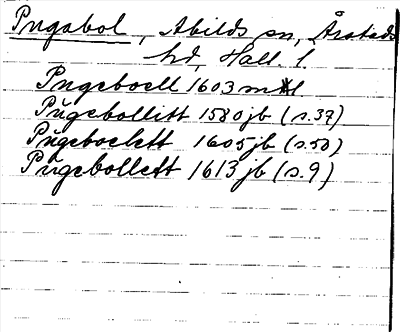 Pugabol, Abilds sn, Årstads
hd, Hall. l.
Pugeboell 1603 mtl
Pŭgebollitt 1580 jb (s. 37)
Pŭgeboelett 1605 jb (s. 50)
Pŭgebollett 1613 jb (s. 9)